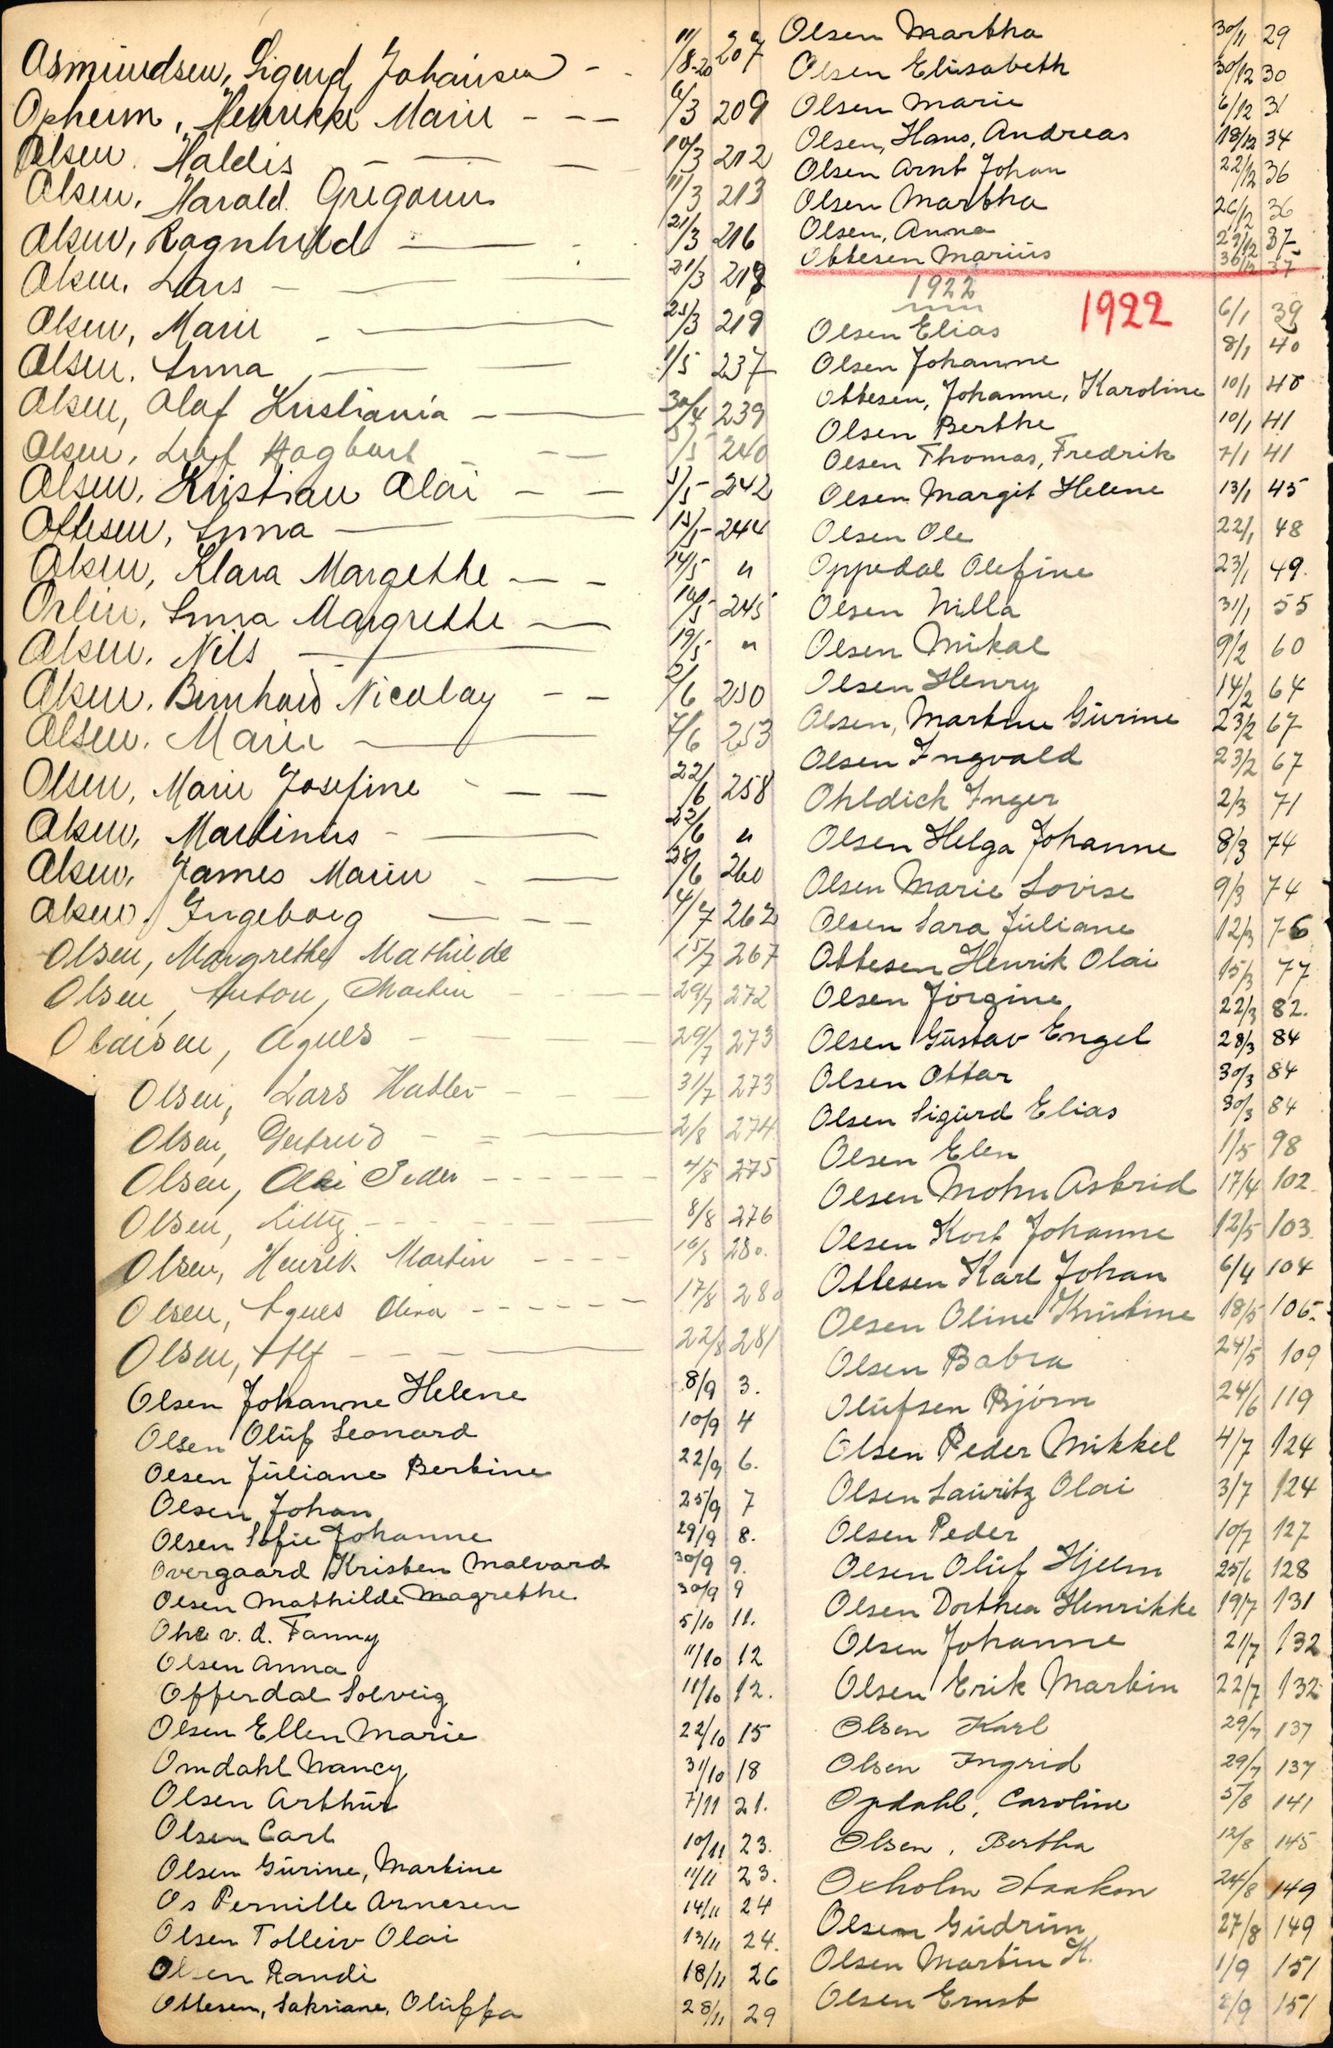 Osmundsen, Sigurd Johansen - - 11/8-20 207
Opheim, Henrikke Marie - - - 6/3 209
Olsen. Haldis - - - 10/3 212
Olsen, Harald Gregorius 11/3 213
Olsen, Ragnhild - - 21/3 216
Olsen, Lars - - 21/3 218
Olsen, Marie - - 23/3 219
Olsen, Anna - - 1/5 237
Olsen, Olaf Kristiania - - 30/4 239
Olsen, Leif Hagbart - - 3/5 240
Olsen, Kristian Olai - - 5/5 242
Ottesen, Anna - 13/5 244
Olsen, Klara Margethe - - 14/5 "
Orlin, Anna Margrethe - - 245
Olsen, Nils - 19/5 "
Olsen, Bernhard Nicolay - - 2/6 250
Olsen, Marie - 7/6 253
Olsen, Marie Josefine - - 22/6 258
Olsen, Martinius - - 22/6 "
Olsen, James Marin - - 28/6 260
Olsen, Ingeborg - - 4/7 262
Olsen, Margrethe Mathilde 15/7 267
Olsen, Anton, Martin - - - 29/7 272
Olaisen, Agnes - - 29/7 273
Olsen, Lars - - 31/7 273
Olsen, Gertrud - - 2/8 274
Olsen, Peder - - - 4/8 275
Olsen, Lilly - - - 8/8 276
Olsen, Henrik Martin - - - 16/8 280.
Olsen, Agnes Olina - - - 17/8 280
Olsen, Alf - - - 22/8 281
Olsen Johanne Helene 8/9 3.
Olsen Oluf Leonard 10/9 4
Olsen Juliane Bertine 22/9 6.
Olsen Johan 25/9 7
Olsen Sofie Johanne 29/9 8.
Overgaard Kristen Malvard 30/9 9.
Olsen Mathilde Magrethe 30/9 9
Ohe v. d. Fanny 5/10 11.
Olsen Anna 11/10 12
Offerdal Solveig 11/10 12.
Olsen Ellen Marie 22/10 15
Omdahl Nancy 31/10 18
Olsen Arthur 7/11 21.
Olsen Carl 10/11 23.
Olsen Gurine, Martine 11/11 23.
Os Pernille Arnesen 14/11 24
Olsen Tolleiv Olai 13/11 24.
Olsen Randi 18/11 26
Ottesen, Sakriane, Oluffa 28/11 29
Olsen Martha 30/11 29
Olsen Elisabeth 30/12 30
Olsen Marie 6/12 31
Olsen, Hans, Andreas 18/12 34
Olsen Arnt Johan 22/12 36
Olsen Martha 26/12 36
Olsen, Anna 29/12 37
Ottesen Marius 30/12 37
1922 1922
Olsen Elias 6/1 39
Olsen Johanne 8/1 40
Ottesen, Johanne, Karoline 10/1 40
Olsen Berthe 10/1 41
Olsen Thomas, Fredrik 7/1 41
Olsen Margit Helene 13/1 45
Olsen Ole 22/1 48
Oppedal Olefine 23/1 49.
Olsen Nilla 31/1 55
Olsen Mikal 9/2 60
Olsen Henry 14/2 64
Olsen, Martine Gurine 23/2 67
Olsen Ingvald 23/2 67
Ohldich Inger 2/3 71
Olsen Helga Johanne 8/3 74
Olsen Marie Lovise 9/3 74
Olsen Sara Juliane 12/3 76
Ottesen Henrik Olai 15/3 77
Olsen Jørgine 22/3 82.
Olsen Gustav Engel 28/3 84
Olsen Ottar 30/3 84
Olsen Sigurd Elias 30/3 84
Olsen Elen 1/5 98
Olsen Mohn Astrid 17/4 102
Olsen Kort Johanne 12/5 103
Ottesen Karl Johan 6/4 104
Olsen Oline Kristine 18/5 106.
Olsen Babra 24/5 109
Olufsen Bjørn 24/6 119
Olsen Peder Mikkel 4/7 124
Olsen Lauritz Olai 3/7 124
Olsen Peder 10/7 127
Olsen Oluf Hjelm 25/6 128
Olsen Dorthea Henrikke 19/7 131
Olsen Johanne 21/7 132
Olsen Erik Martin 22/7 132
Olsen Karl 29/7 137
Olsen Ingrid 29/7 137
Opdahl, Caroline 5/8 141
Olsen, Bertha 12/8 145
Oxholm Haakon 24/8 149
Olsen Gudrun 27/8 149
Olsen Martin K. 1/9 151
Olsen Ernst 2/9 151